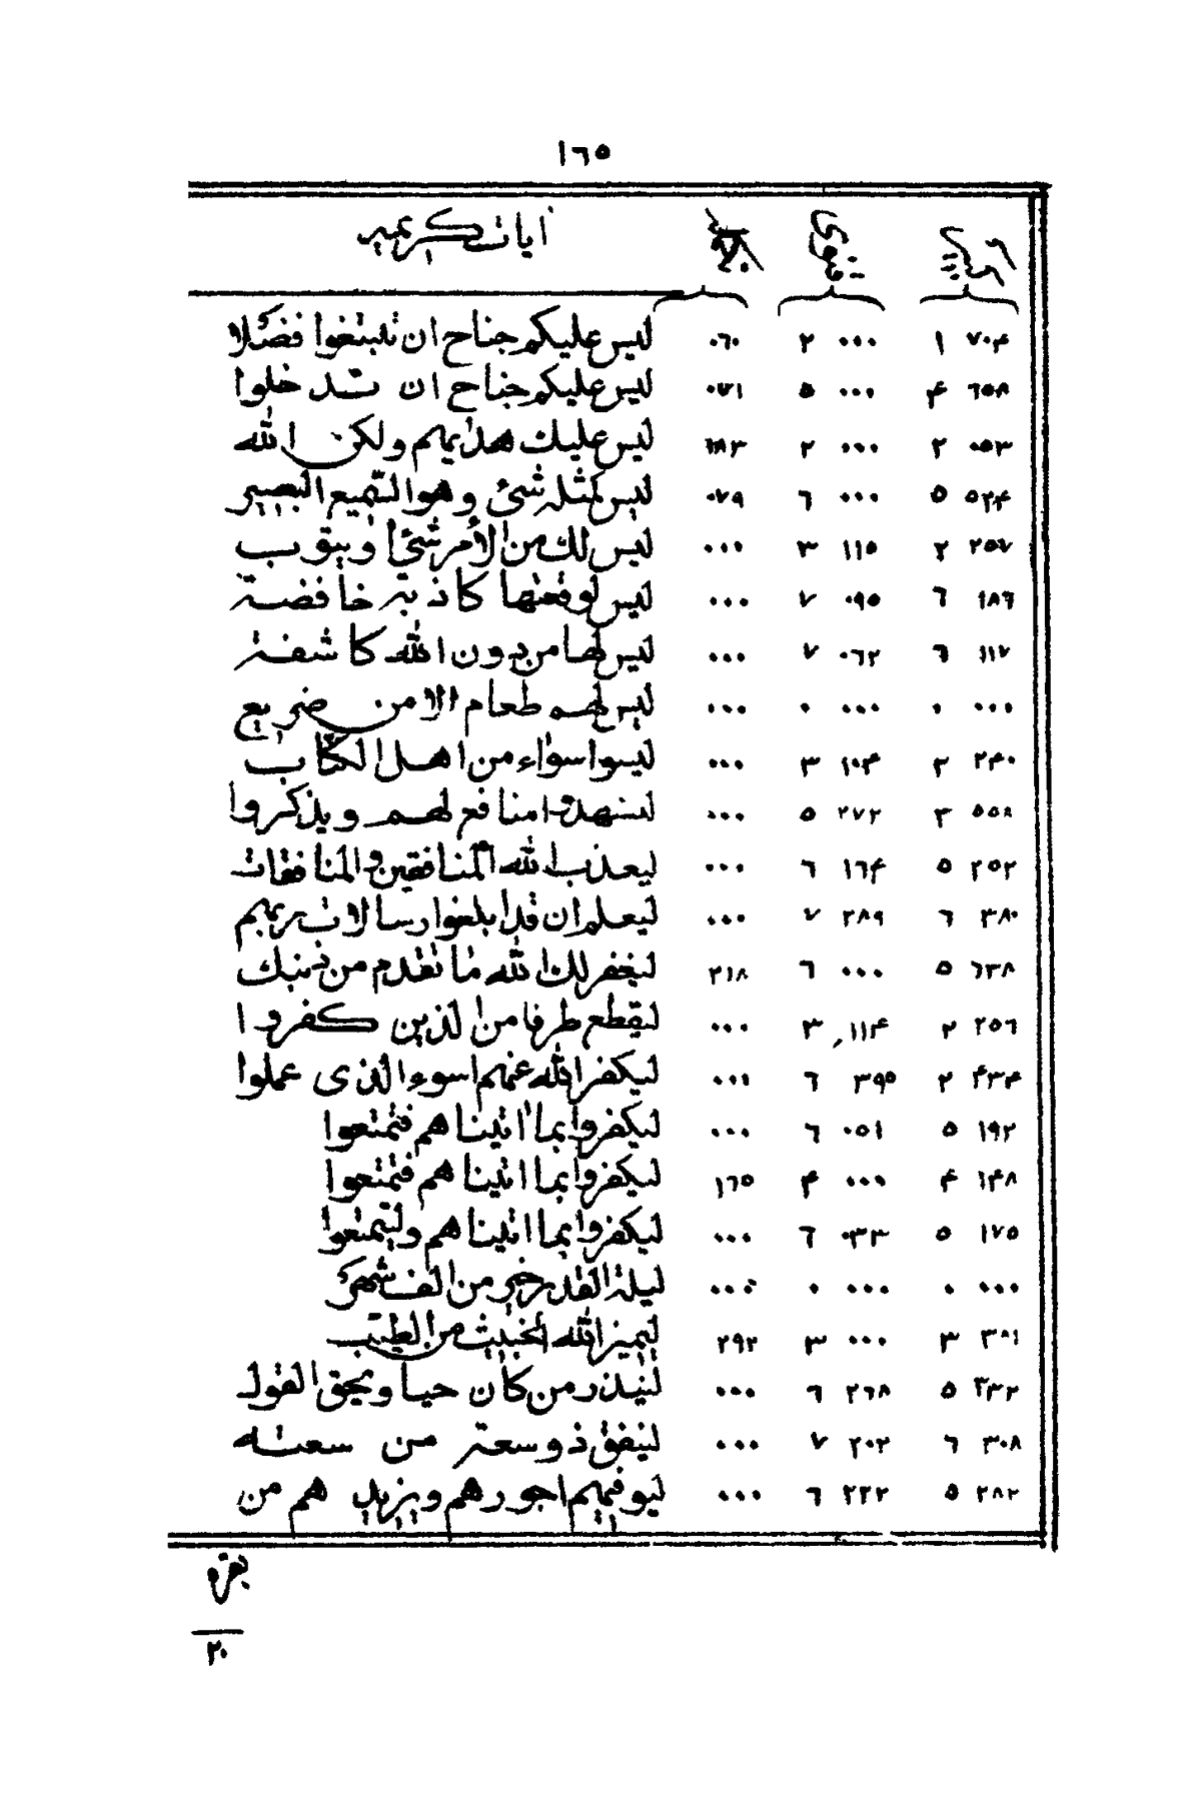 ١٦٥
آيات كريمه
٧٠٤ ١ ٠٠٠ ٢ ٠٦٠ ليس عليكم جناح ان تبتغوا فضلا
٦٥٨ ۴ ٠٠٠ ٥ ٠٧١ ليس عليكم جناح ان تدخلوا
٠٥٣ ٢ ٠٠٠ ٢ ٦٨٣ ليس عليك هديهم ولكن الله
٥٢۴ ٥ ٠٠٠ ٦ ٠٧٩ ليس كمثله شئ وهو السميع البصير
٢٥٧ ٢ ١١٥ ٣ ٠٠٠ ليس لك من الأمر شئ او يتوب
١٨٦ ٦ ٠٩٥ ٧ ٠٠٠ ليس لوقعتها كاذبة خافضة
١١٧ ٦ ٠٦٢ ٧ ٠٠٠ ليس لها من دون الله كاشفة
٠٠٠ ٠ ٠٠٠ ٠ ٠٠٠ ليس لهم طعام الا من ضريع
٢۴٠ ٢ ١٠۴ ٣ ٠٠٠ ليسوا سواء من اهل الكتاب
٥٥٨ ٣ ٢٧٢ ٥ ٠٠٠ ليشهدوا منافع لهم ويذكروا
٢٥٢ ٥ ١٦۴ ٦ ٠٠٠ ليعذب الله المنافقين والمنافقات
٣٨٠ ٦ ٢٨٩ ٧ ٠٠٠ ليعلم ان قد ابلغوا رسالات ربهم
٦٣٨ ٥ ٠٠٠ ٦ ٢١٨ ليغفر لك الله ما تقدم من ذنبك
٢٥٦ ٢ ١١۴ ٣ ٠٠٠ ليقطع طرفا من الذين كفروا
۴٣۴ ٢ ٣٩٥ ٦ ٠٠٠ ليكفر الله عنهم اسوء الذى عملوا
١٩٢ ٥ ٠٥١ ٦ ٠٠٠ ليكفروا بما اتيناهم فتمتعوا
١۴٨ ۴ ٠٠٠ ۴ ١٦٥ ليكفروا بما اتيناهم فتمتعوا
١٧٥ ٥ ٠٣٣ ٦ ٠٠٠ ليكفروا بما اتيناهم وليتمتعوا
٠٠٠ ٠ ٠٠٠ ٠ ٠٠٠ ليلة القدر خير من الف شهر
٣٨١ ٣ ٠٠٠ ٣ ٢٩٢ ليميز الله الخبيث من الطيب
٣٣٢ ٥ ٢٦٨ ٦ ٠٠٠ لينذر من كان حيا ويحق القول
٣٠٨ ٦ ٢٠٢ ٧ ٠٠٠ لينفق ذو سعة من سعته
٢٨٢ ٥ ٢٢٢ ٦ ٠٠٠ ليوفيهم اجورهم ويزيدهم من
٢٠